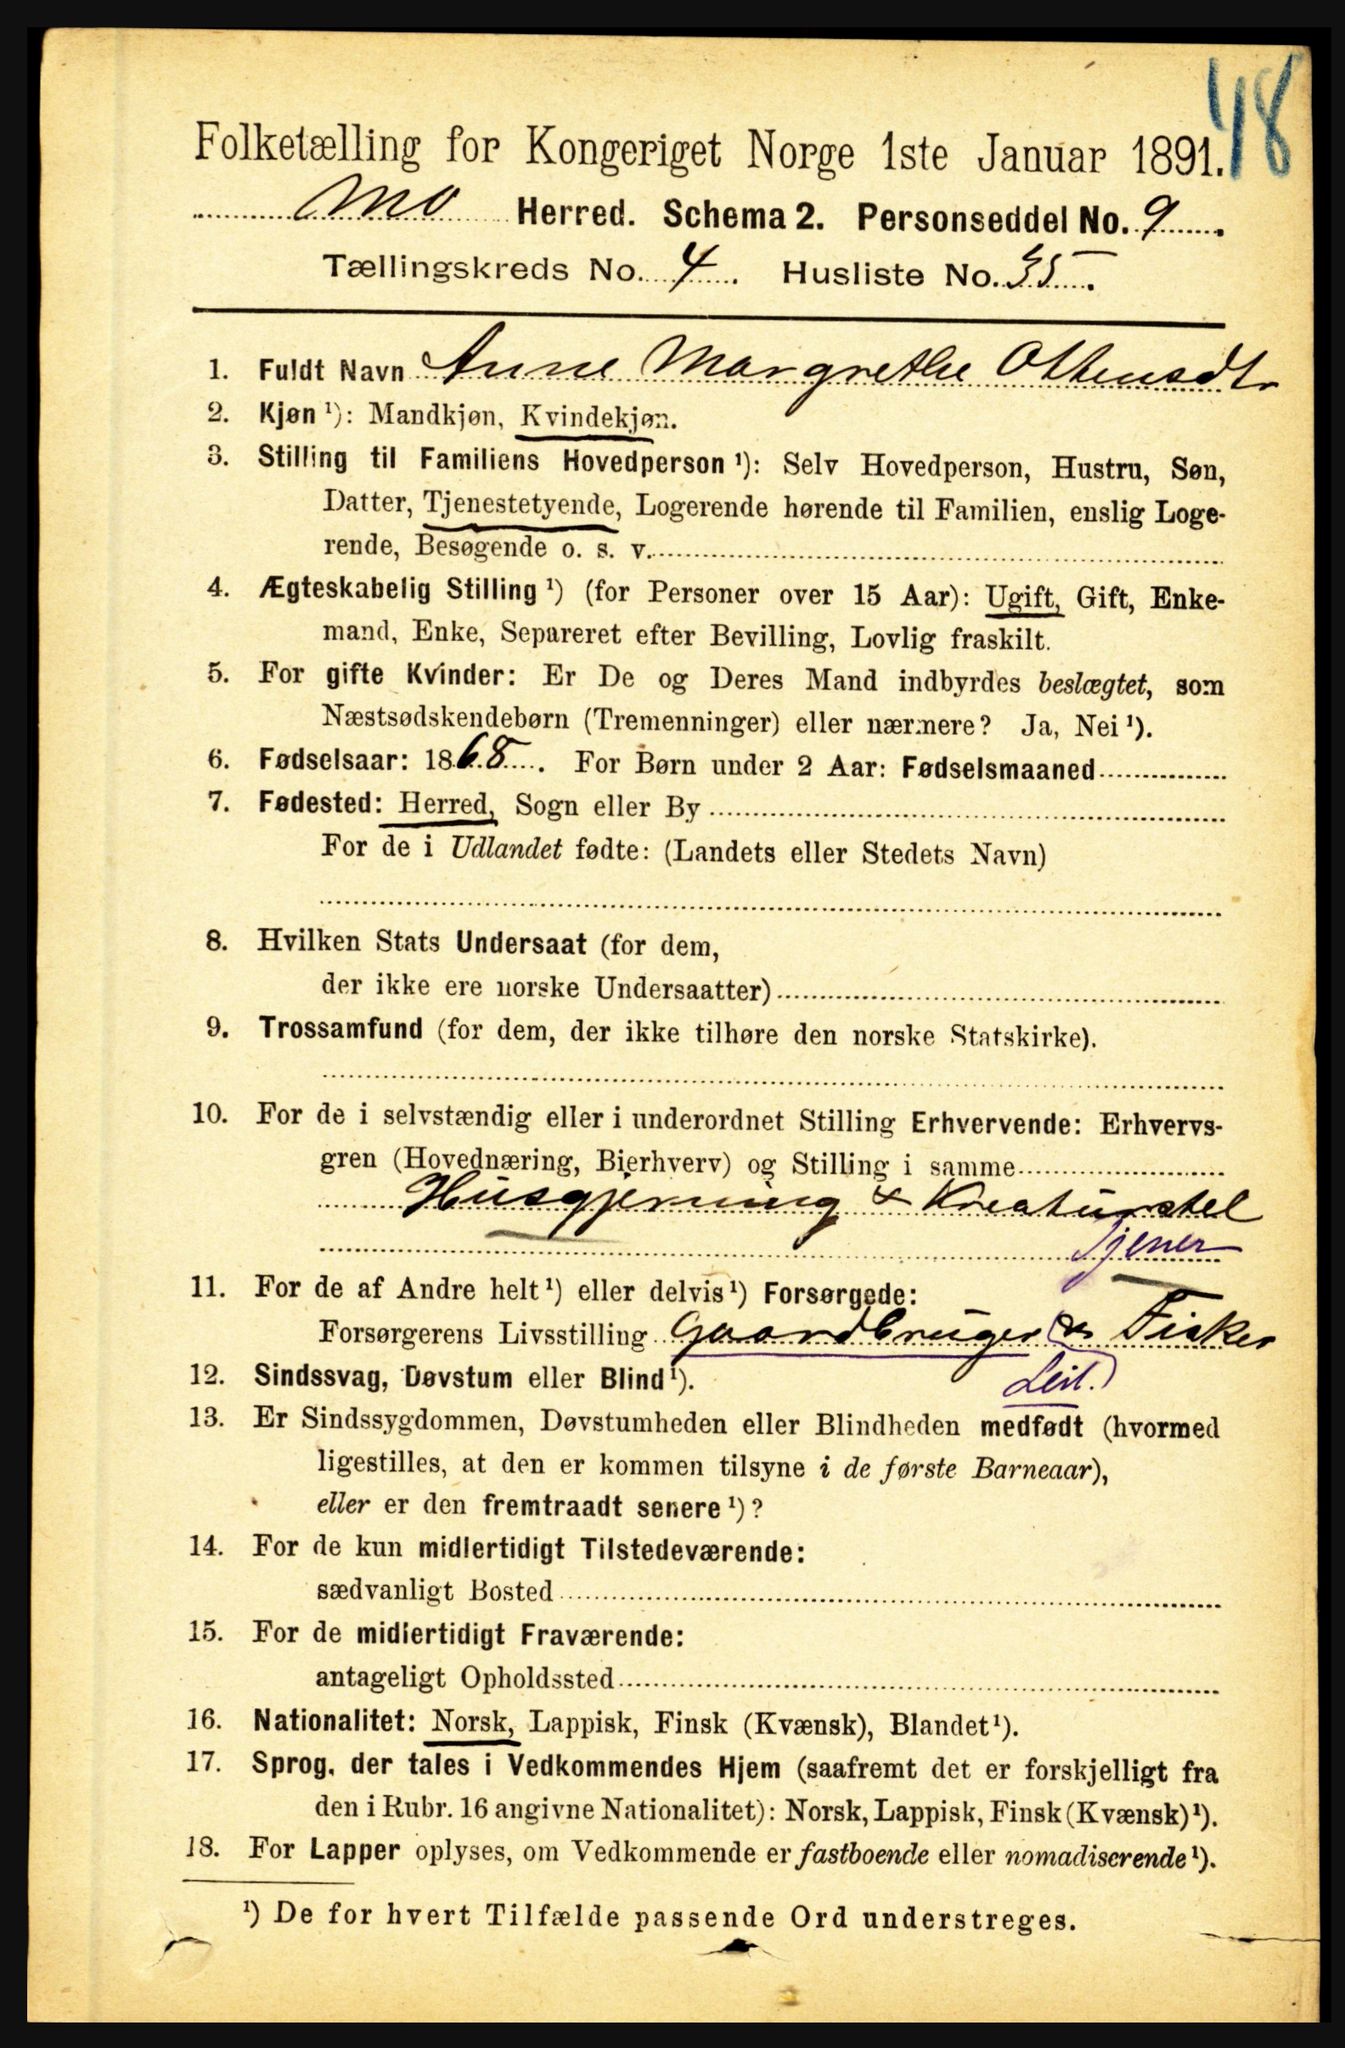 48
Folketælling for Kongeriget Norge 1ste Januar 1891.
Mo Herred. Schema 2. Personseddel No. 9.
Tællingskreds No. 4. Husliste No. 35.
1. Fuldt Navn Anne Margrethe Ottensdtr
2. Kjøn ¹): Mandkjøn, Kvindekjøn.
3. Stilling til Familiens Hovedperson ¹): Selv Hovedperson, Hustru, Søn,
Datter, Tjenestetyende, Logerende hørende til Familien, enslig Loge-
rende, Besøgende o. s. v.
4. Ægteskabelig Stilling ¹) (for Personer over 15 Aar): Ugift, Gift, Enke-
mand, Enke, Separeret efter Bevilling, Lovlig fraskilt.
5. For gifte Kvinder: Er De og Deres Mand indbyrdes beslægtet, som
Næstsødskendebørn (Tremenninger) eller nærmere? Ja, Nei ¹).
6. Fødselsaar: 1868. For Børn under 2 Aar: Fødselsmaaned
7. Fødested: Herred, Sogn eller By
For de i Udlandet fødte: (Landets eller Stedets Navn)
8. Hvilken Stats Undersaat (for dem,
der ikke ere norske Undersaatter)
9. Trossamfund (for dem, der ikke tilhøre den norske Statskirke).
10. For de i selvstændig eller i underordnet Stilling Erhvervende: Erhvervs-
gren (Hovednæring, Bierhverv) og Stilling i samme
Husgjerning & Kreaturstel
Tjener
11. For de af Andre helt ¹) eller delvis ¹) Forsørgede:
Forsørgerens Livsstilling Gaardbruger & Fisker
12. Sindssvag, Døvstum eller Blind ¹). Leil.
13. Er Sindssygdommen, Døvstumheden eller Blindheden medfødt (hvormed
ligestilles, at den er kommen tilsyne i de første Barneaar),
eller er den fremtraadt senere ¹)?
14. For de kun midlertidigt Tilstedeværende:
sædvanligt Bosted
15. For de midlertidigt Fraværende:
antageligt Opholdssted
16. Nationalitet: Norsk, Lappisk, Finsk (Kvænsk), Blandet ¹).
17. Sprog, der tales i Vedkommendes Hjem (saafremt det er forskjelligt fra
den i Rubr. 16 angivne Nationalitet): Norsk, Lappisk, Finsk (Kvænsk) ¹).
18. For Lapper oplyses, om Vedkommende er fastboende eller nomadiserende ¹).
¹) De for hvert Tilfælde passende Ord understreges.